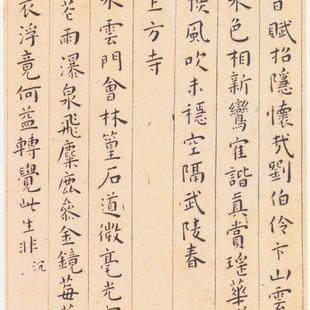 賦招隱懷哉劉伯伶卞山雲
色相新鸞隺諧真賞瑤華
風吹未穩空隔武陵春
上方寺
雲門會林篁石道微毫光
雨瀑泉飛麋鹿參金鏡莓
浮竟何益轉覺此生非 沉